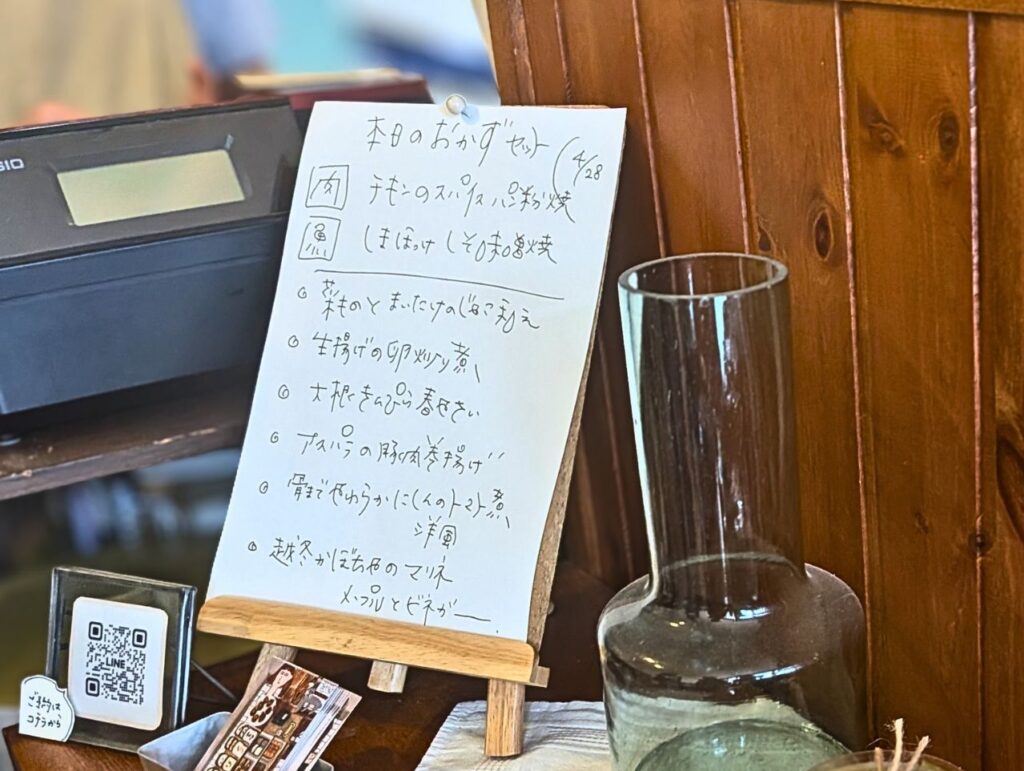 SIO
本日のおかずセット (4/28
肉 チキンのスパイスパン粉焼
魚 しまほっけ しそ味噌焼
菜ものとまいたけのじゃこ和え
生揚げの卵炒り煮
大根きんぴら 春やさい
アスパラの豚肉巻揚げ
骨までやわらかにしんのトマト煮
洋風
越冬かぼちゃのマリネ
メープルとビネガー
LINE
ご予約は
コチラから